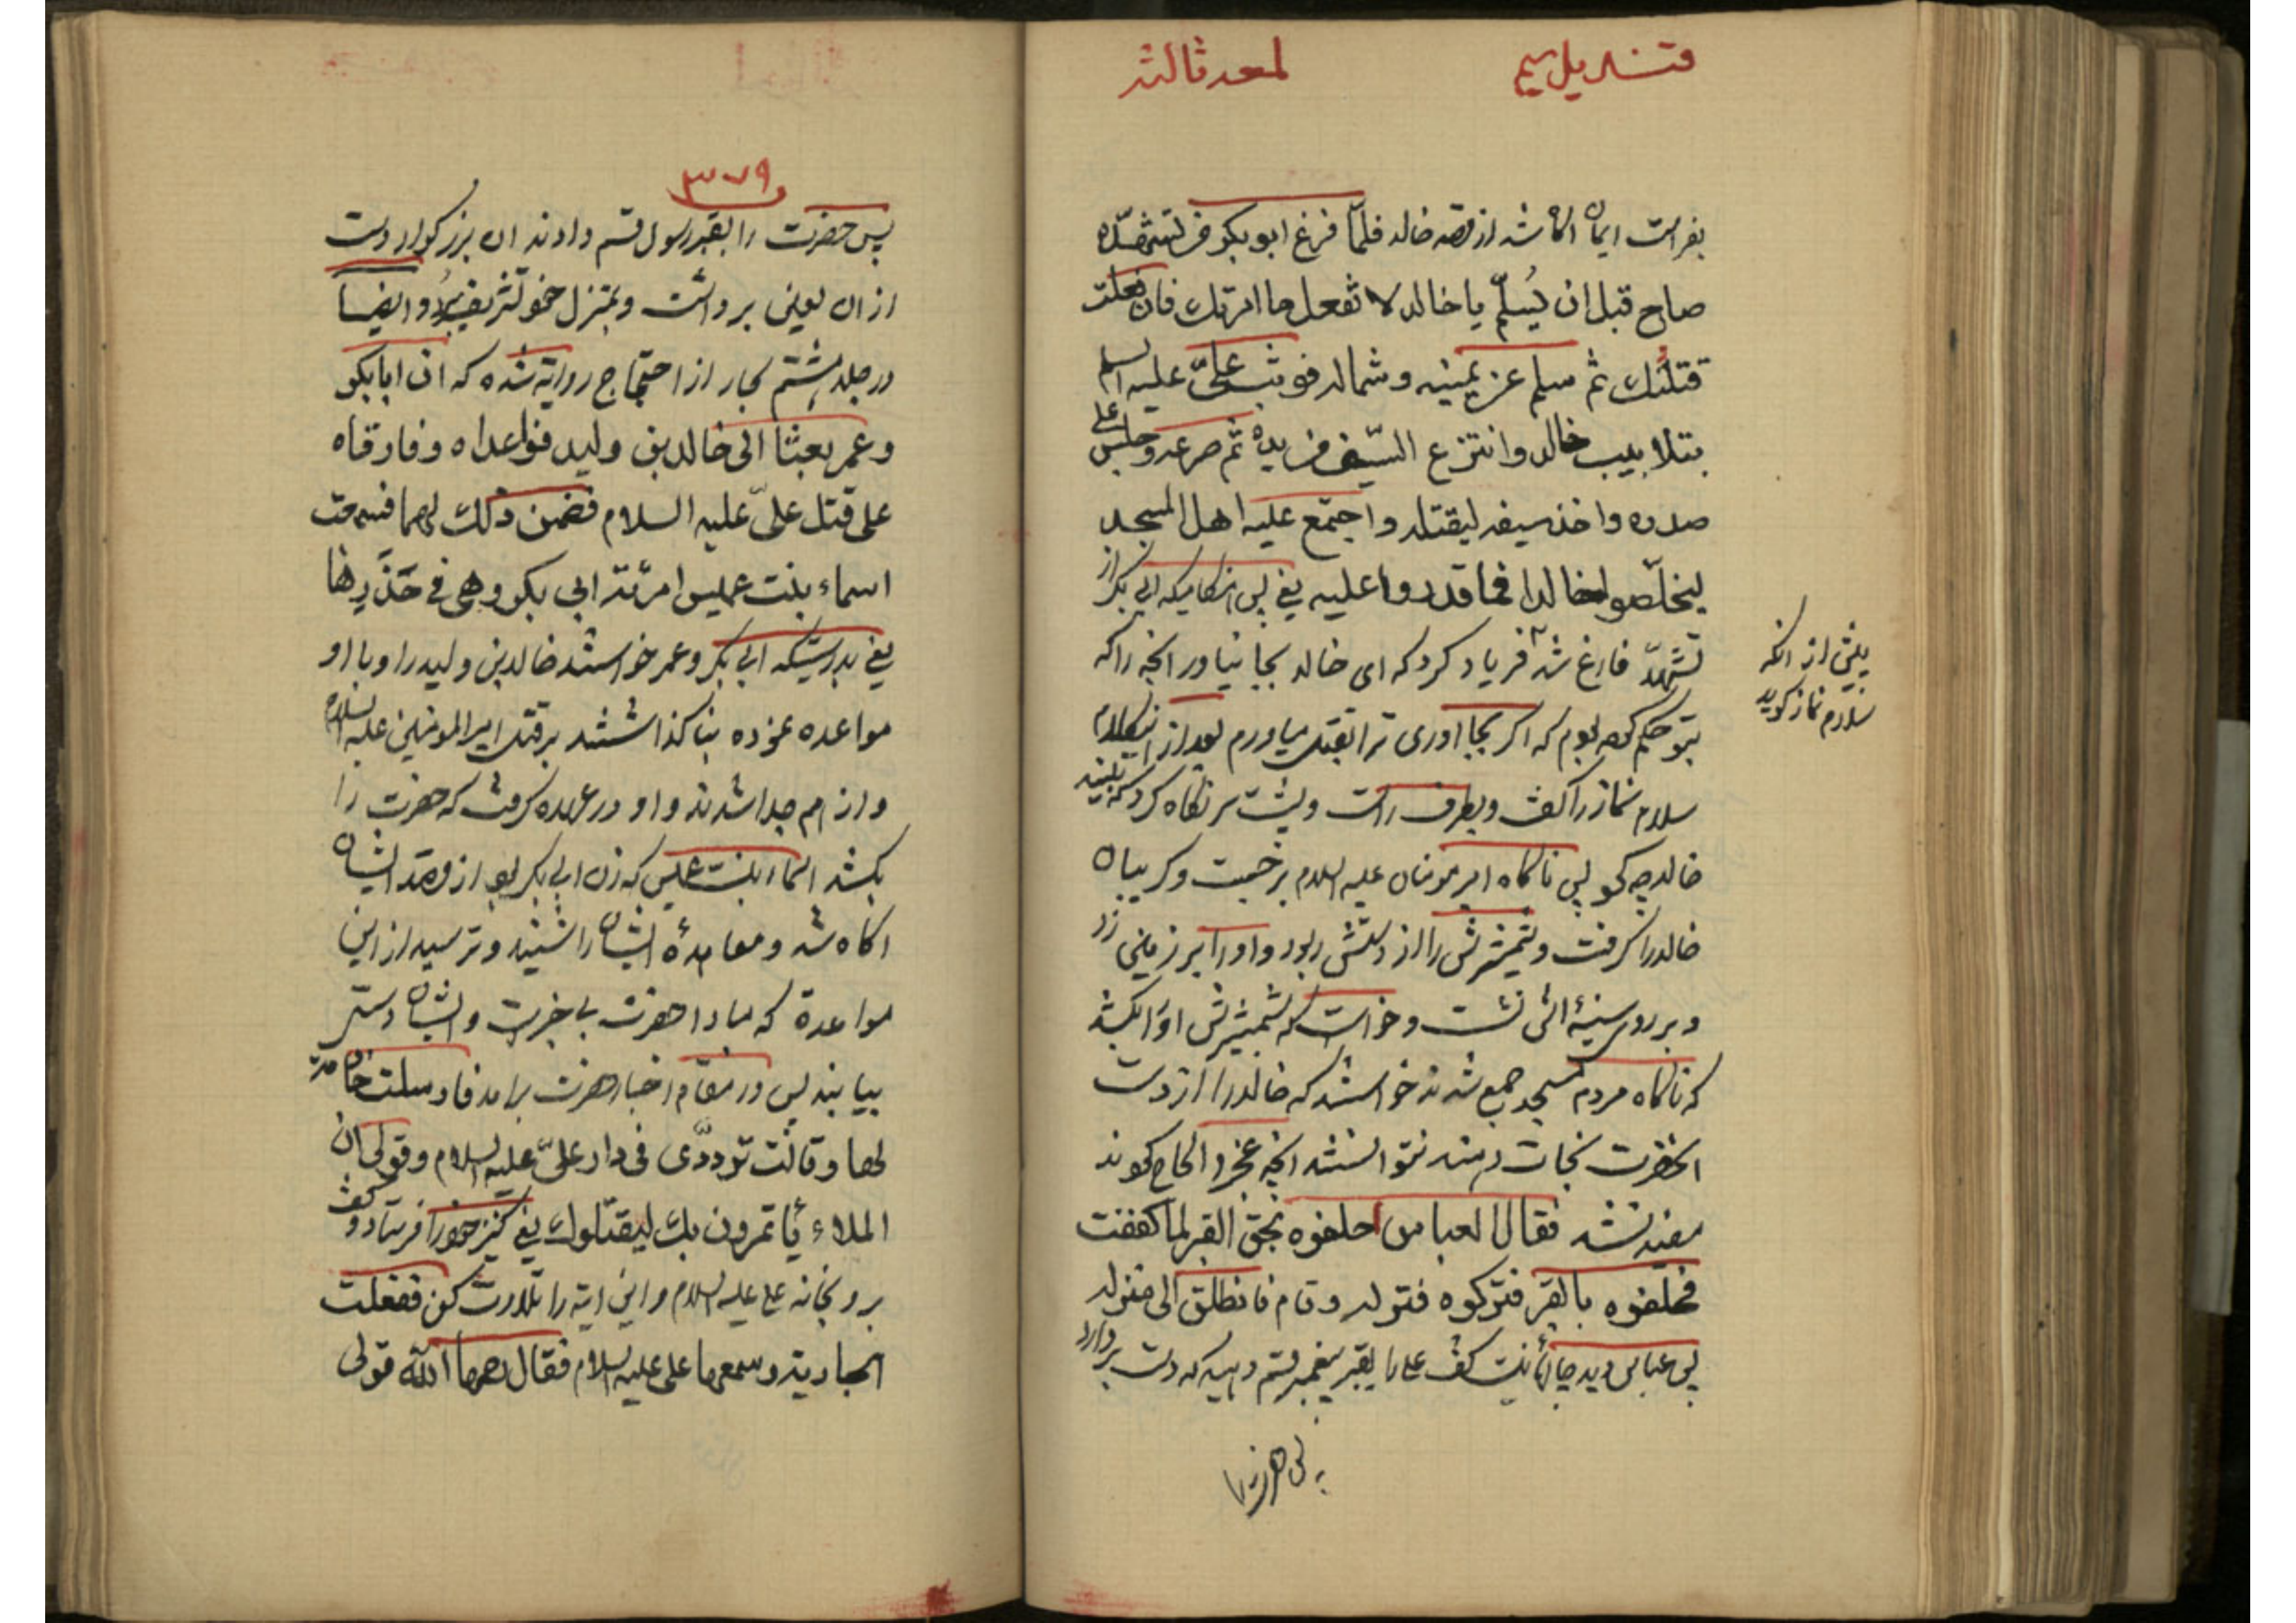 قندیل سیم
لمعه ثالثه
بفراست ایمان اکاه شد از قصد خالد فلمّا فرغ ابوبکر من تشهّده
صاح قبل ان یُسلّم یا خالد لا تفعل ما امرتک فان فعلت
قتلتُک ثم سلم عن یمینه و شماله فوثب علیّ علیه السلم
بتلابیب خالد وانتزع السّیف من یده ثم صرعه وجلس علی
صدره واخذ سیفه لیقتله واجتمع علیه اهل المسجد
لیخلّصوا خالدا فما قدروا علیه یعنی پس هنکامیکه ابی بکر از
تشهّد فارغ شد فریاد کرد که ای خالد بجا نیاور انچه را که
پیش از انکه
سلام نماز کوید
بتو حکم کرده بودم که اکر بجا اوری ترا بقتل میاورم بعد از اینکلام
سلام نماز را کفت و بطرف راست و پشت سر نکاه کرد که ببیند
خالد چه کرد پس ناکاه امیر مؤمنان علیه السلام برجست و کریبان
خالد را کرفت و شمشیرش را از دستش ربود و او را بر زمین زد
و بر روی سینهٔ اش نشست و خواست که بشمشیرش او را بکشد
که ناکاه مردم مسجد جمع شدند خواستند که خالد را از دست
انحضرت نجات دهند نتوانستند انچه عجز و الحاح کردند
مفید نشد فقال العباس احلفوه بحق القبر لما کففت
فحلّفوه بالقبر فترکوه فتوله وقام فانطلق الی منزله
پس عباس دید چارهٔ نیست کفت علی را بقبر پیغمبر قسم دهید که دست بردارد
پس حضرت را
۳۷۹
پس حضرت را بقبر رسول قسم دادند ان بزرکوار دست
از ان لعین برداشت و بمنزل خود تشریف برد و ایضاً
در جلد هشتم بحار از احتجاج روایة شده که ان ابابکر
وعمر بعثا الی خالد بن ولید فواعداه وفارقاه
علی قتل علیّ علیه السلام فضمن ذلک لهما فسمعت
اسماء بنت عمیس امرئة ابی بکر وهی فی خَدْرِها
یعنی بدرستیکه ابی بکر و عمر خواستند خالد بن ولید را و با او
مواعده نموده بنا کذاشتند بر قتل امیر المومنین علیه السلام
و از هم جدا شدند و او در عهده کرفت که حضرت را
بکشد اسماء بنت عمیس که زن ابی بکر بود از قصد ایشان
اکاه شد و معاهدهٔ ایشان را شنید و ترسید از این
مواعدة که مبادا حضرت بی خبر است و ایشان دستی
بیابند پس در مقام اخبار حضرت برامد فارسلت خادمة
لها وقالت تردّدی فی دار علیّ علیه السلام وقولی ان
الملاء یأتمرون بک لیقتلوک یعنی کنیز خود را فرستاد و کفت
برو بخانه علی علیه السلام و این ایة را تلاوت کن ففعلت
الجاریة وسمعها علی علیه السلام فقال رحمها اللّه قولی